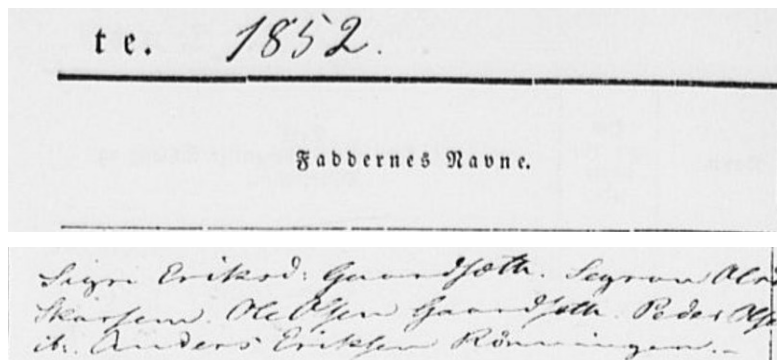 te. 1852.
Faddernes Navne.
Sigri Eriksd: Gaardsæth. Segrou
Skarsem. Ole Olsen Gaardsæth. Peder Olse
ib. Anders Eriksen Rönningen.